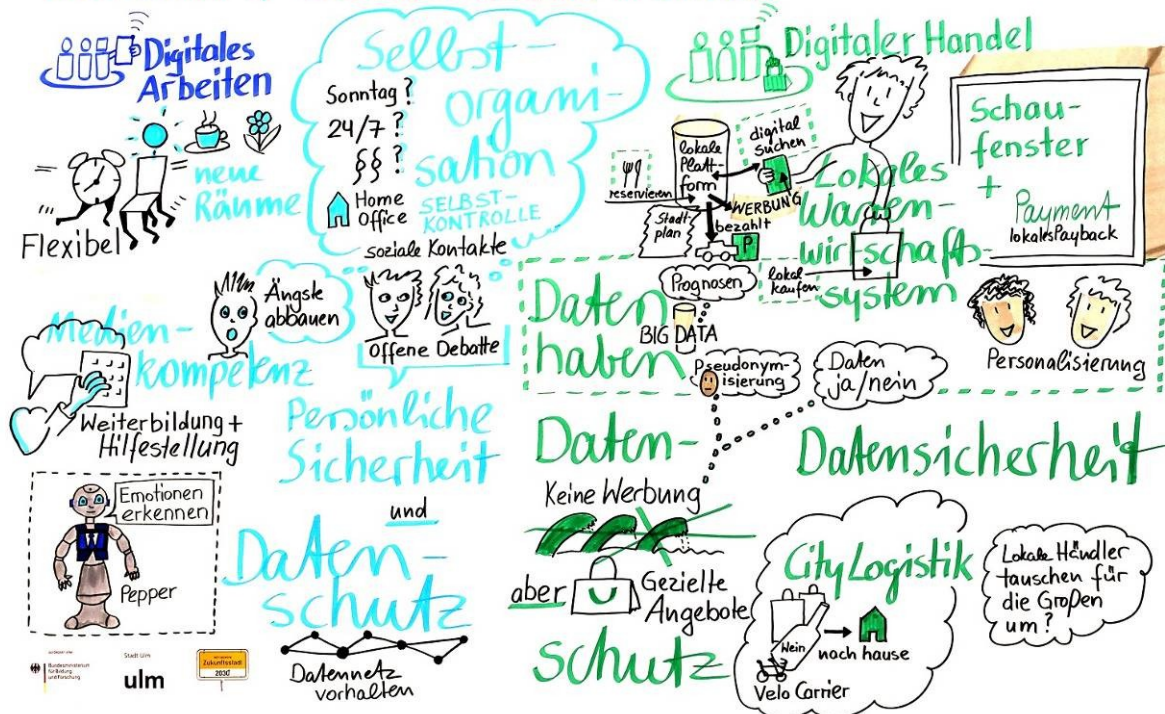 Digitales
Arbeiten
neue
Räume
Flexibel
Selbst-
organi-
sation
Sonntag?
24/7?
§§?
Home
Office
SELBST-
KONTROLLE
soziale Kontakte
Ängste
abbauen
Offene Debatte
Medien-
kompetenz
Weiterbildung +
Hilfestellung
Persönliche
Sicherheit
und
Daten-
schutz
Emotionen
erkennen
Pepper
Datennetz
vorhalten
Bundesministerium
für Bildung
und Forschung
Stadt Ulm
ulm
Zukunftsstadt
2030
Digitaler Handel
lokale
Platt-
form
digital
suchen
reservieren
WERBUNG
Stadt-
plan
bezahlt
P
Lokales
Waren-
wirtschaft-
system
lokal
kaufen
Schau-
fenster
+
Payment
lokales Payback
Personalisierung
Daten
haben
Prognosen
BIG DATA
Pseudonym-
isierung
Daten
ja/nein
Daten-
schutz
Datensicherheit
Keine Werbung
aber
Gezielte
Angebote
CityLogistik
Wein
nach hause
Velo Carrier
Lokale Händler
tauschen für
die Großen
um?